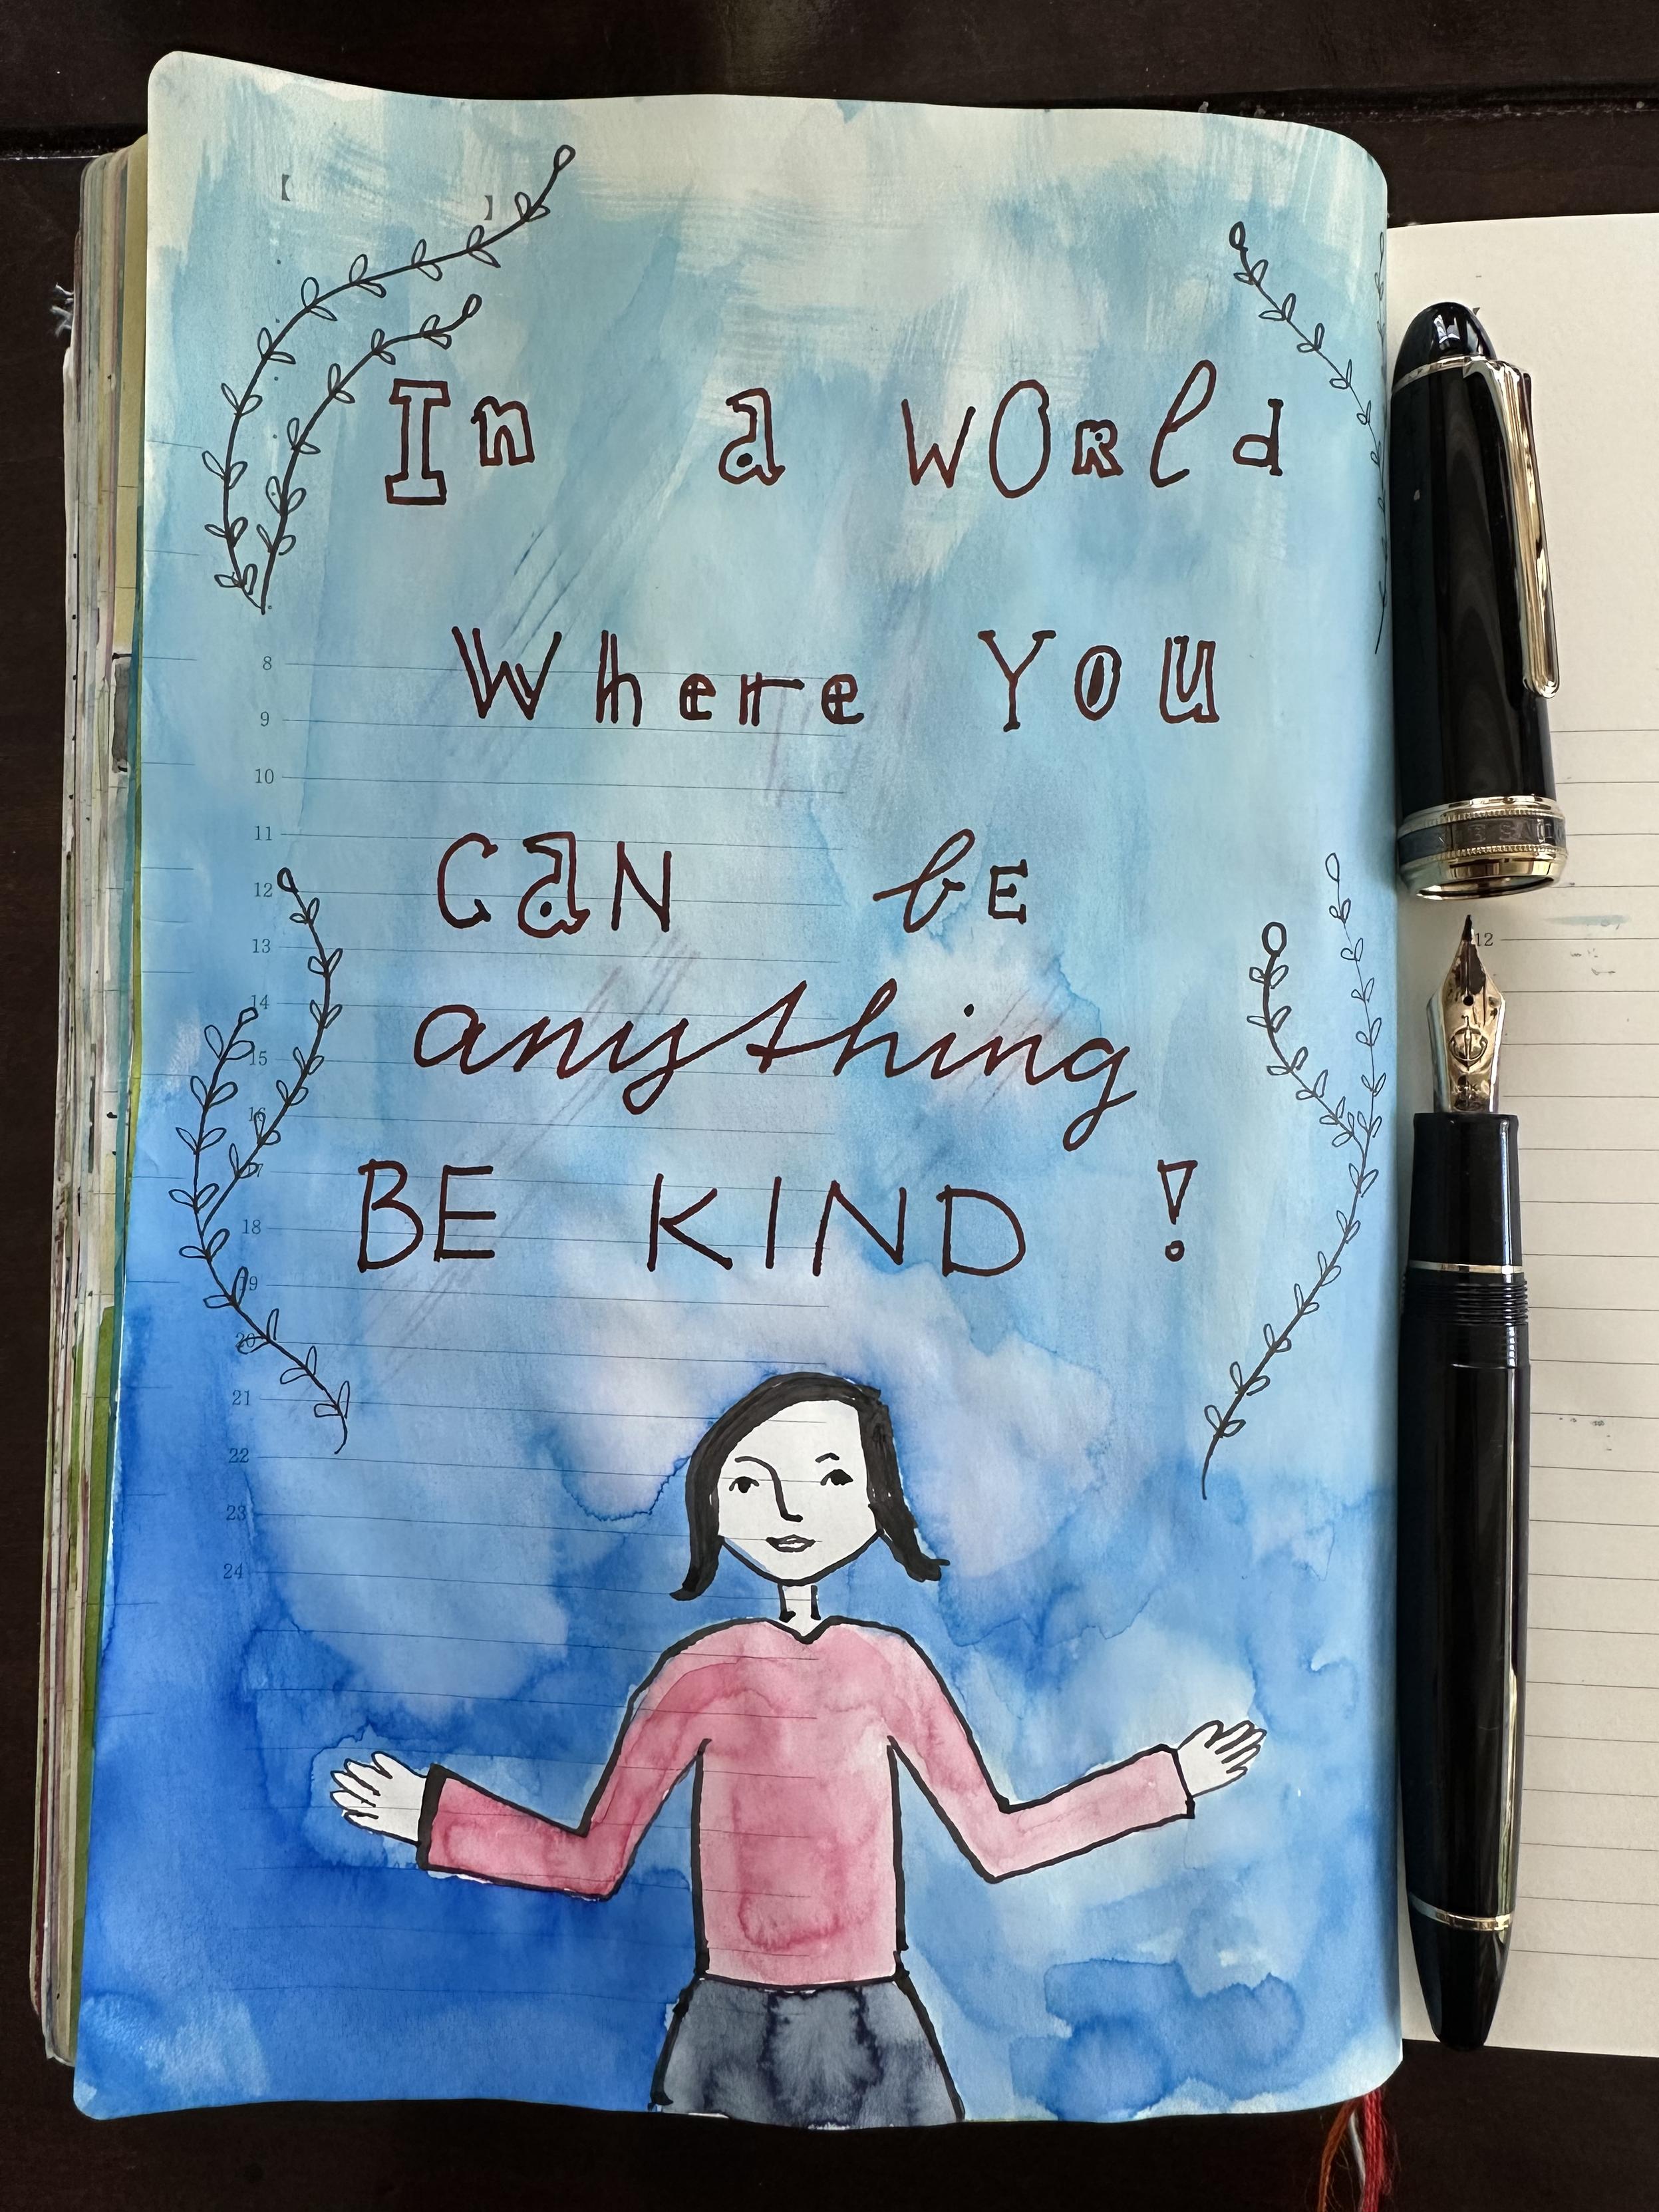 In a wORld
Where YOU
CaN bE
anything
BE KIND !
8
9
10
11
12
13
14
15
16
17
18
19
20
21
22
23
24
12